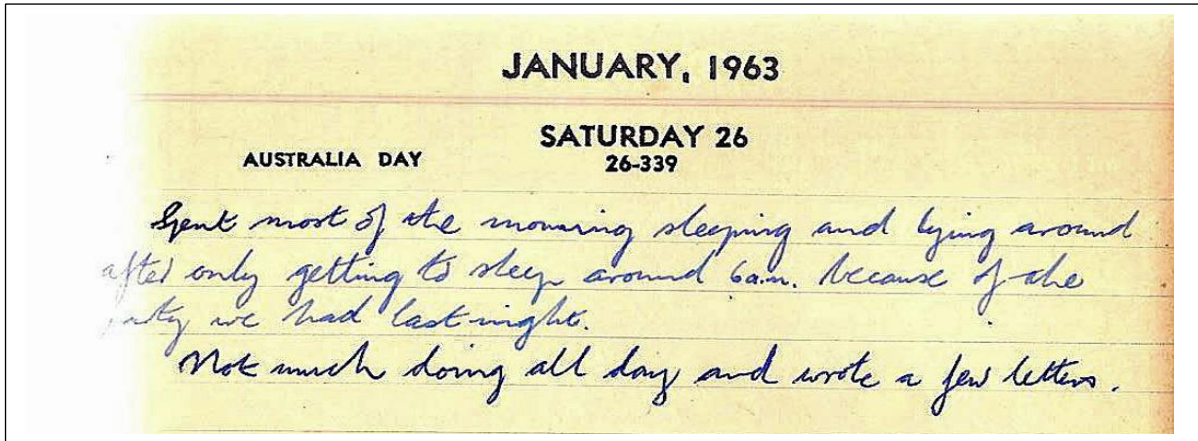 JANUARY, 1963
SATURDAY 26
AUSTRALIA DAY
26-339
Spent most of the morning sleeping and lying around
after only getting to sleep around 6a.m. because of the
party we had last night.
Not much doing all day and wrote a few letters.